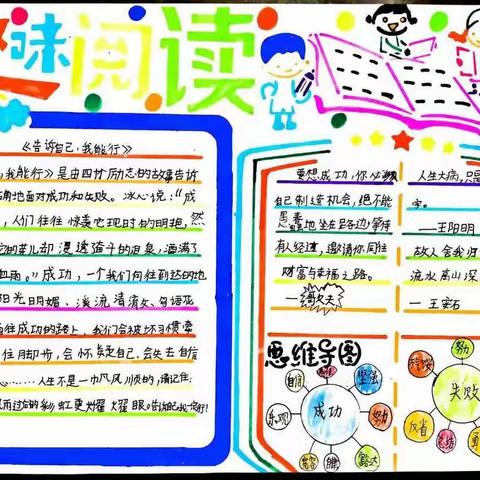 趣味阅读
《告诉自己，我能行》
我能行》是由四什励志的故事告诉
面对成功和失败。冰心说：“成
，人们往往惊羡它现时的明艳，然
它的芽儿却浸透奋斗的泪泉，洒满了
血雨。”成功，一个我们向往到达的地
阳光明媚、溪流清澈、
往成功的路上，我们会被坏习惯牵
住脚步，会怀疑自己，会失去自信
……人生不是一帆风顺的，请记住：
风雨过后的彩虹更耀耀眼。告诉自己我一定行！
要想成功，你必须
自己制造机会，绝不能
愚蠢地坐在路边，等待
有人经过，邀请你同往
财富与幸福之路。
人生大病，只是
字。
——王阳明
故人会我归
流水高山深
——王安石
思维导图
成功
自信
坚强
努力
豁达
乐观
宽容
失败
努力
反省
总结